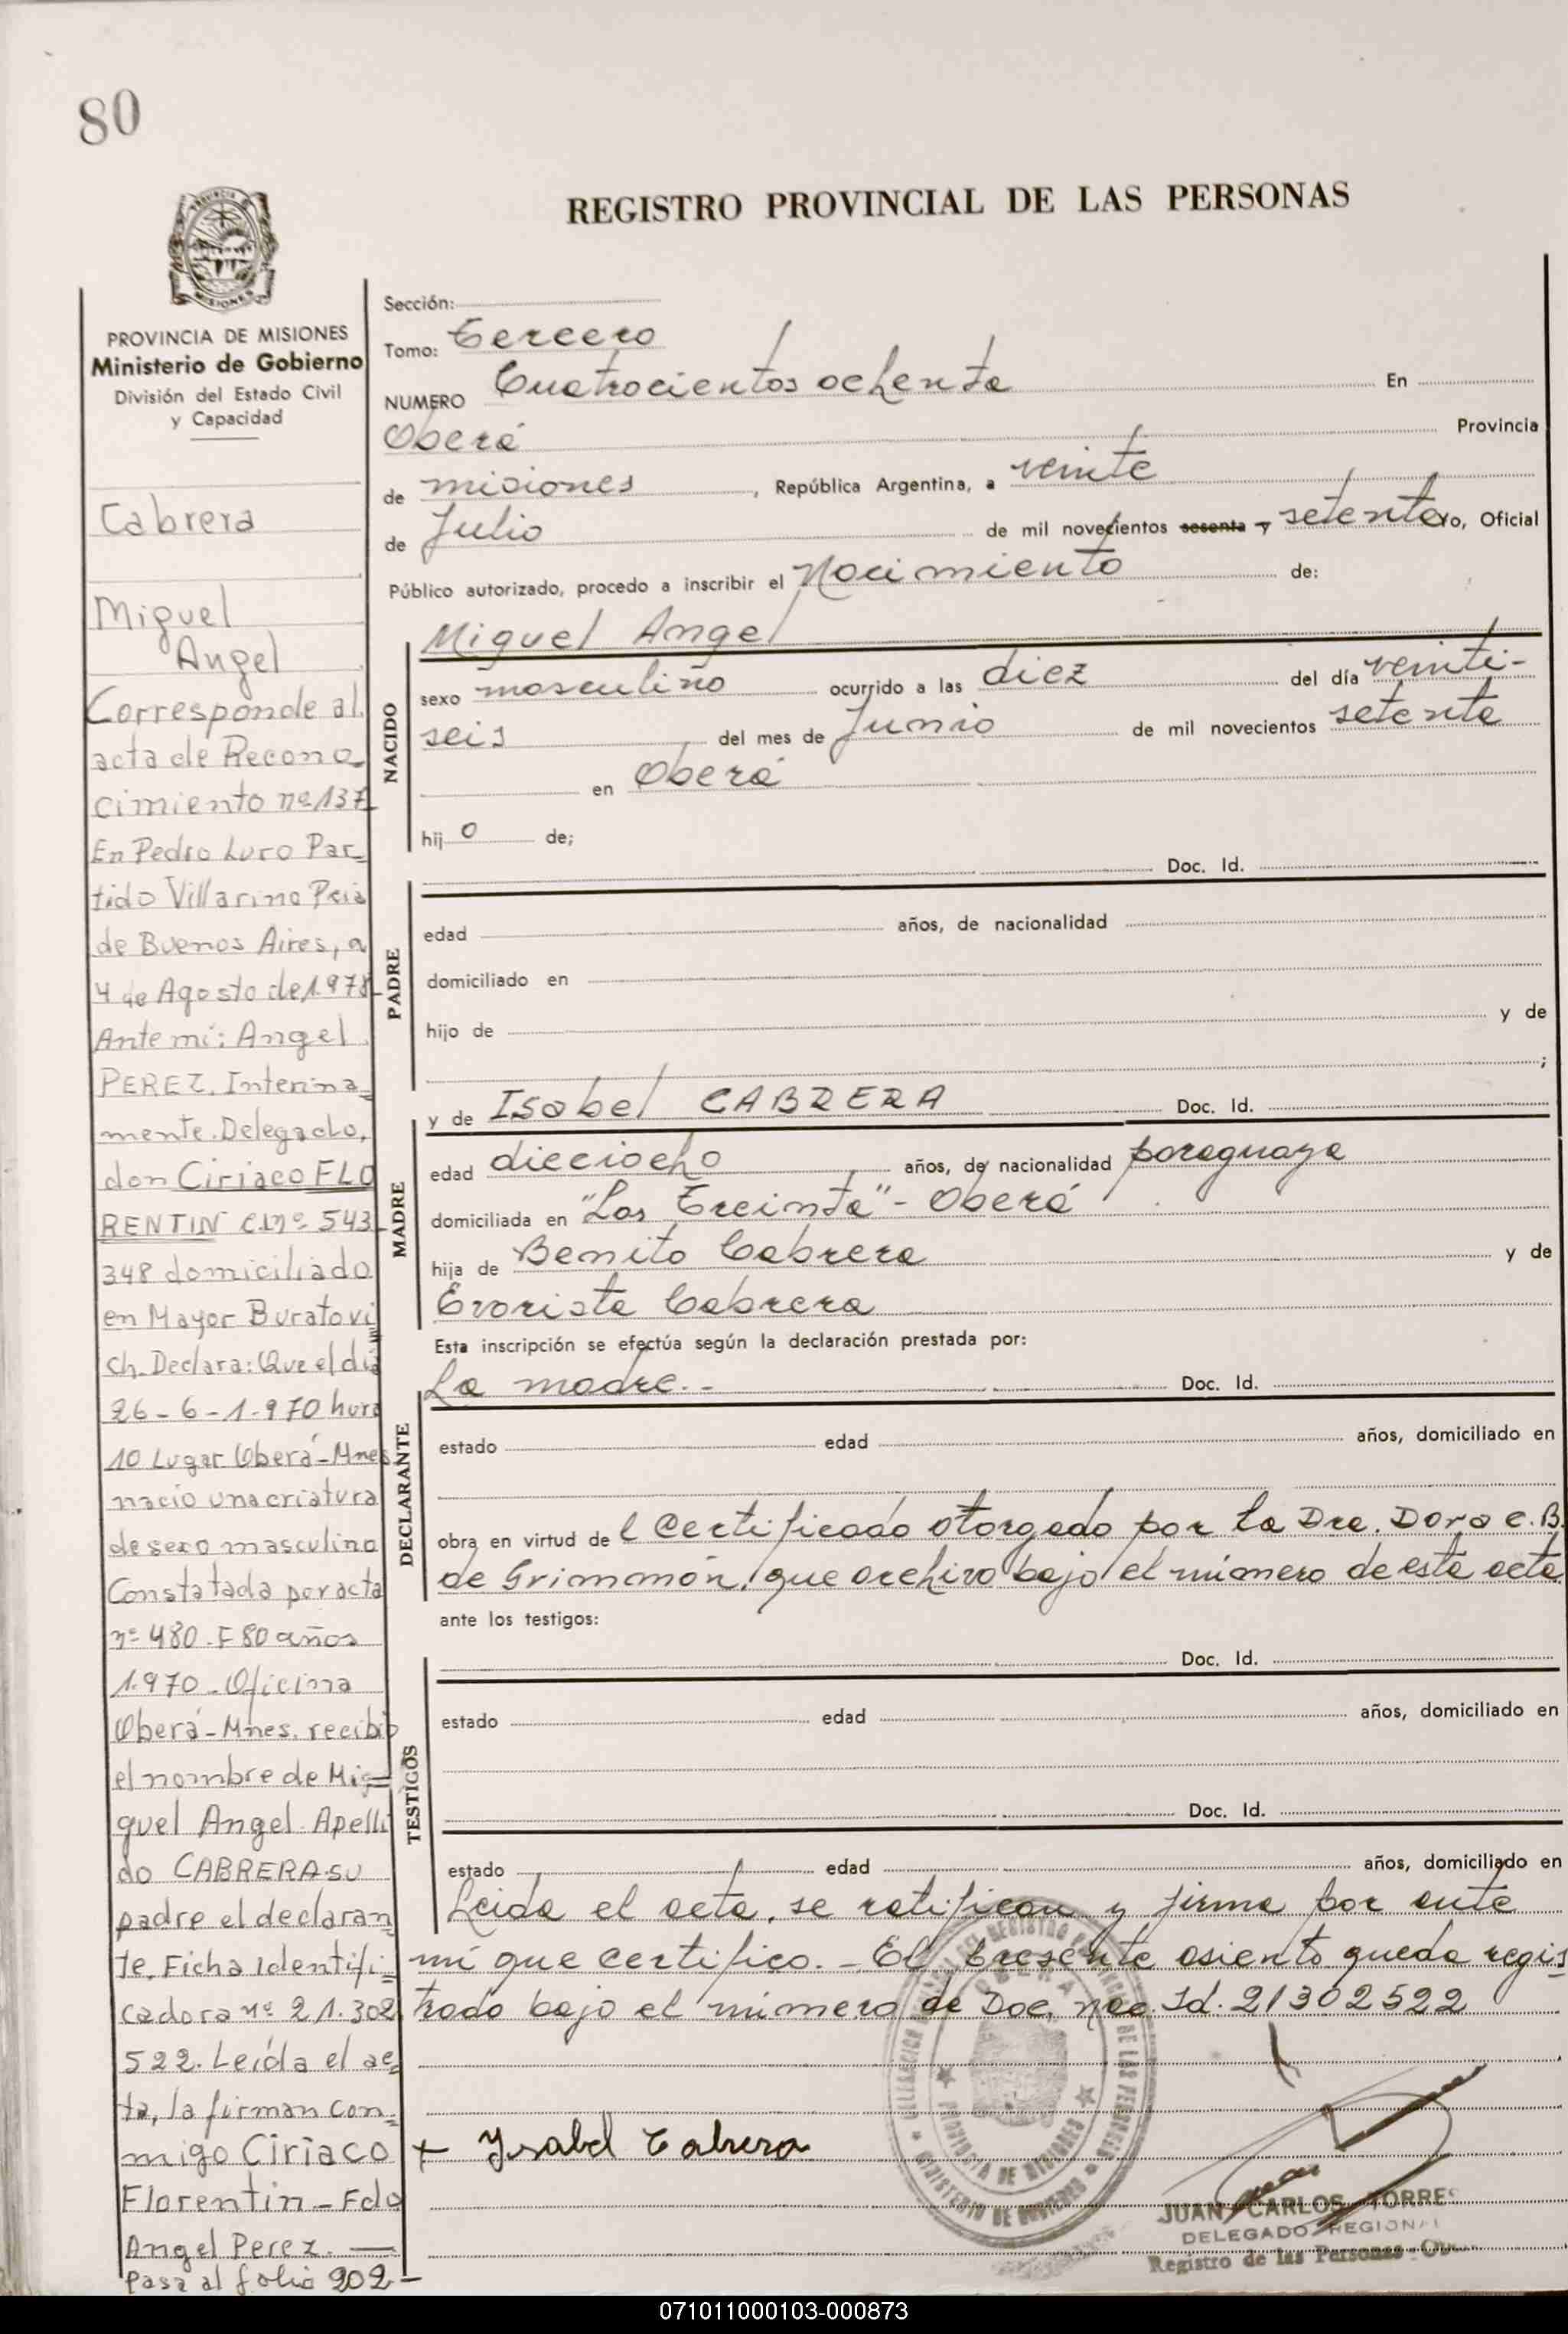 80
REGISTRO PROVINCIAL DE LAS PERSONAS
MISIONES
PROVINCIA DE MISIONES
Ministerio de Gobierno
División del Estado Civil
y Capacidad
Cabrera
Miguel
Angel
Corresponde al
acta de Recono
cimiento nº 137
En Pedro Luro Par_
tido Villarino Pcia
de Buenos Aires, a
4 de Agosto de 1.978
Ante mí: Angel
PEREZ. Interina_
mente. Delegado,
don Ciriaco FLO
RENTIN C.I nº 543_
348 domiciliado
en Mayor Buratovi
ch. Declara: Que el día
26-6-1.970 hora
10 Lugar Oberá-Mnes
nació una criatura
de sexo masculino
Constatada por acta
nº 480. F 80 años
1.970 - Oficina
Oberá-Mnes. recibió
el nombre de Mi=
guel Angel. Apelli
do CABRERA su
padre el declaran
te. Ficha Identifi=
cadora nº 21.302
522. Leída el ac=
ta, la firman con=
migo Ciriaco
Florentin - Fdo
Angel Perez. —
Pasa al folio 202-
Sección:
Tomo: Tercero
NUMERO Cuatrocientos ochenta En
Oberá Provincia
de misiones, República Argentina, a veinte
de Julio de mil novecientos sesenta y setenta yo, Oficial
Público autorizado, procedo a inscribir el Nacimiento de:
NACIDO
Miguel Angel
sexo masculino ocurrido a las diez del día veinti-
seis del mes de Junio de mil novecientos setenta
en Oberá
hijo de;
Doc. Id.
PADRE
edad años, de nacionalidad
domiciliado en
hijo de y de
;
MADRE
y de Isabel CABRERA Doc. Id.
edad dieciocho años, de nacionalidad paraguaya
domiciliada en "Los Treinta" - Oberá
hija de Benito Cabrera y de
Evarista Cabrera
Esta inscripción se efectúa según la declaración prestada por:
DECLARANTE
La madre.- Doc. Id.
estado edad años, domiciliado en
obra en virtud del Certificado otorgado por la Dra. Dora C. B.
de Grimmón, que archivo bajo el número de esta acta
ante los testigos:
TESTIGOS
Doc. Id.
estado edad años, domiciliado en
Doc. Id.
estado edad años, domiciliado en
Leida el acta, se ratifican y firma por ante
mí que certifico. - El presente asiento queda regis
trado bajo el número de Doc. nac. Id. 21302522
+ Ysabel Cabrera
PROVINCIA DE MISIONES
MINISTERIO DE GOBIERNO
JUAN CARLOS TORRES
DELEGADO REGIONAL
Registro de las Personas -
071011000103-000873